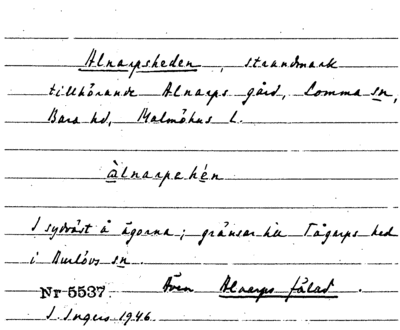 Alnarpsheden, strandmark
tillhörande Alnarps gård, Lomma sn,
Bara hd, Malmöhus l.
àlnarpehén
I sydväst å ägorna; gränsar till Tågarps hed
i Burlövs sn.
Nr 5537. Även Alnarps fälad.
I. Ingers 1946.